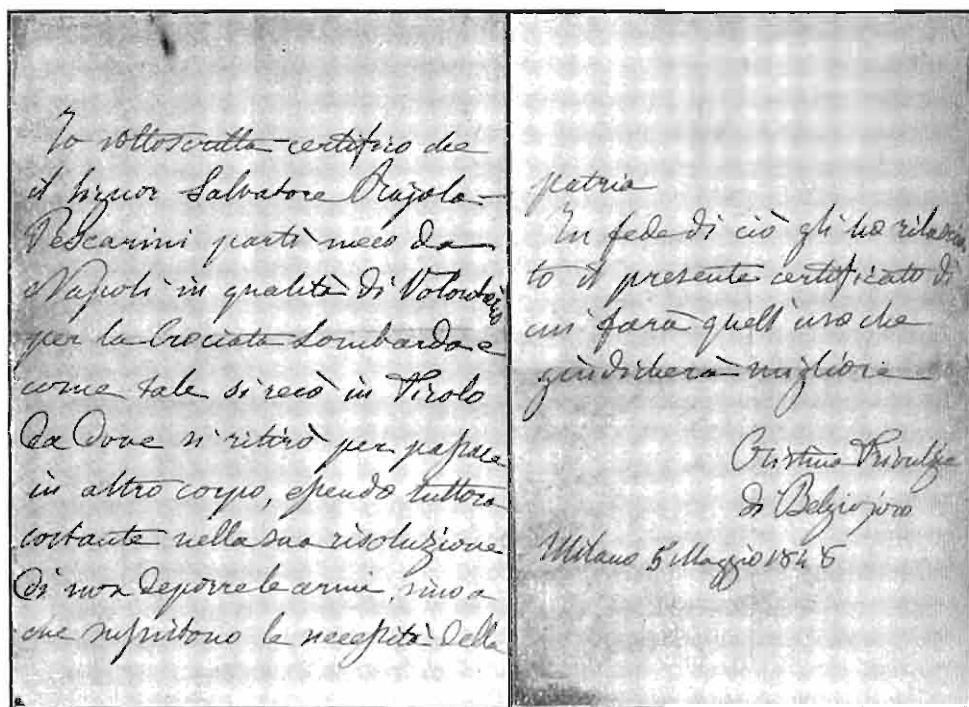 Io sottoscritta certifico che
il Signor Salvatore
Pescarini partì meco da
Napoli in qualità di Volontario
per la Crociata Lombarda e
come tale si recò in Tirolo
da dove si ritirò per passare
in altro corpo, essendo tuttora
costante nella sua risoluzione
di non deporre le armi, sino a
che sussistono le necessità della
patria
In fede di ciò gli ho rilascia
to il presente certificato di
cui farà quell'uso che
giudicherà migliore
Cristina Trivulzio
di Belgiojoso
Milano 5 Maggio 1848